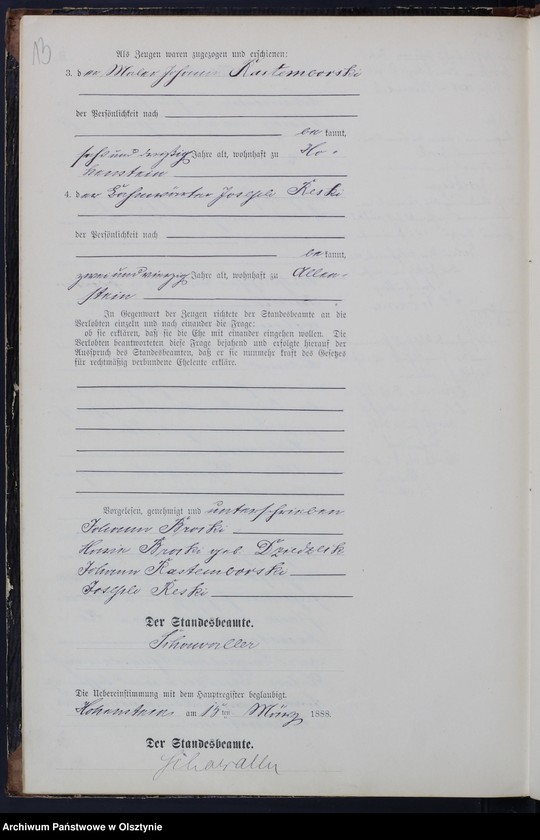 13
Als Zeugen waren zugezogen und erschienen:
3. der Maler Johann Kastemborski
der Persönlichkeit nach
bekannt,
sechs und dreißig Jahre alt, wohnhaft zu Ho-
henstein
4. der Bahnwärter Joseph Reski
der Persönlichkeit nach
bekannt,
zwei und vierzig Jahre alt, wohnhaft zu Allen-
stein
In Gegenwart der Zeugen richtete der Standesbeamte an die
Verlobten einzeln und nach einander die Frage:
ob sie erklären, daß sie die Ehe mit einander eingehen wollen. Die
Verlobten beantworteten diese Frage bejahend und erfolgte hierauf der
Ausspruch des Standesbeamten, daß er sie nunmehr kraft des Gesetzes
für rechtmäßig verbundene Eheleute erkläre.
Vorgelesen, genehmigt und unterschrieben
Johann Broski
Broski geb. Dziedzik
Johann Kastemborski
Joseph Reski
Der Standesbeamte.
Schowaller
Die Uebereinstimmung mit dem Hauptregister beglaubigt.
Hohenstein am 15 ten März 1888.
Der Standesbeamte.
Schowaller
Archiwum Państwowe w Olsztynie